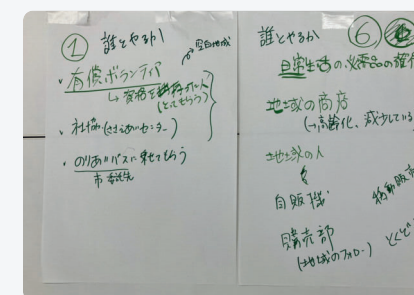 ① 誰とやるか
空白地域
・有償ボランティア
↳ 資格を
(とってもらう)
・社協(ささえあいセンター)
・のりあいバスに乗せてもらう
市 委託先
誰とやるか ⑥
日常生活の必需品の確保
地域の商店
(→高齢化、減少している
地域の人
自販機
移動販売
購売部
(地域のフォロー)